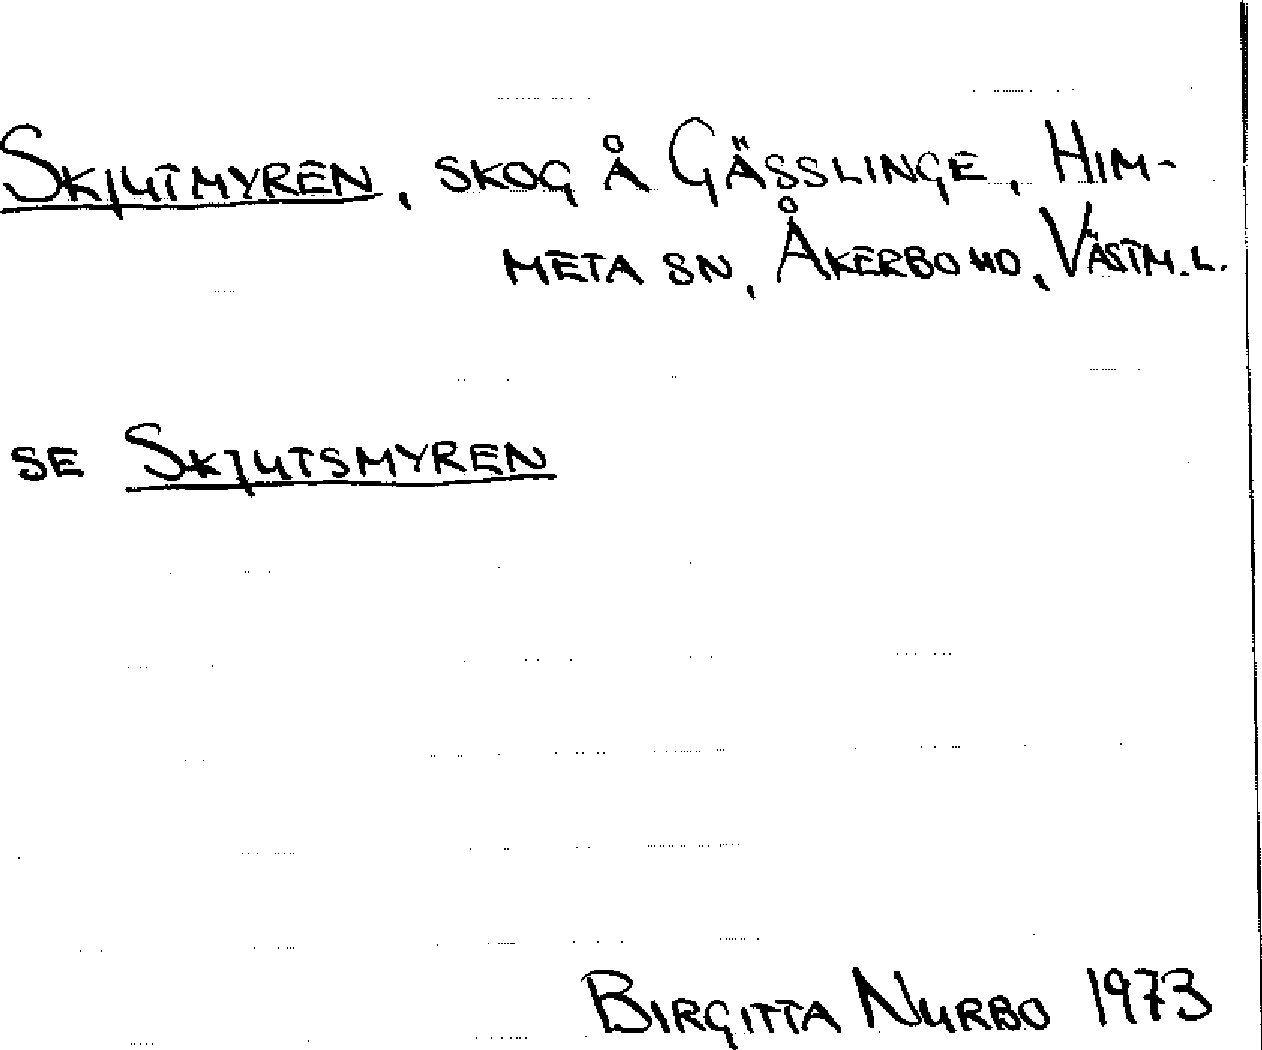 SKJUTMYREN, SKOG Å GÄSSLINGE, HIM-
META SN, ÅKERBO HD, VÄSTM.L.
SE SKJUTSMYREN
BIRGITTA NURBO 1973